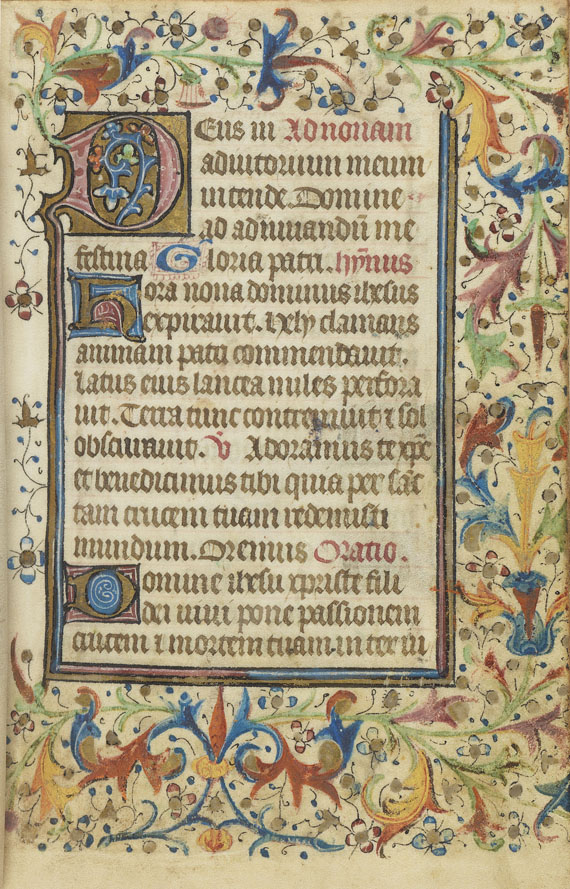 Deus in Ad nonam
adiutorium meum
intende Domine
ad adiuuandū me
festina Gloria patri. hȳnus
Hora nona dominus ihesus
expirauit. hely clamans
animam patri commendauit.
latus eius lancea miles perfora
uit. Terra tunc contremuit ⁊ sol
obscurauit. V Adoramus te xp̄e
et benedicimus tibi quia per sāc
tam crucem tuam redemisti
mundum. Oremus Oratio.
Domine ihesu xpriste fili
dei uiui pone passionem
crucem ⁊ mortem tuam. inter iu